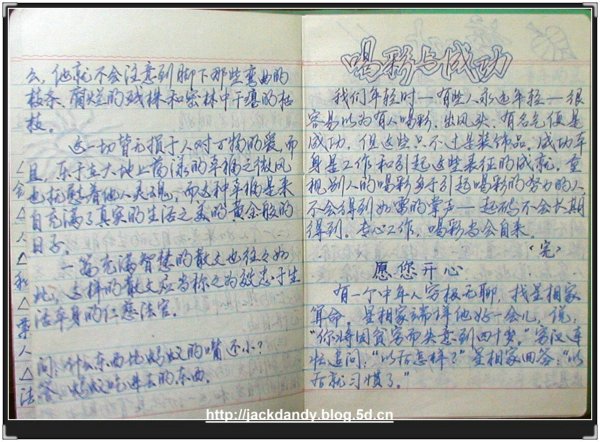 么,他就不会注意到脚下那些弯曲的
枝条、腐烂的残株和密林中干瘪的枯
枝。
这一切皆无损于人对万物的爱,而
且,乐于在大地上荡漾的幸福之微风
也抚慰着他人灵魂,而这种幸福是来
自充满了真实的生活之美的黄金般的
日子。
一篇充满智慧的散文也往往如
此,这样的散文应当称之为致力于生
活本身的仁慈法官。
问:什么东西比蚂蚁的嘴还小?
答:蚂蚁吃进去的东西。
喝彩与成功
我们年轻时——有些人永远年轻——很
容易以为有人喝彩、出风头、有名气便是
成功。但这些只不过是装饰品。成功本
身是工作和引起这些表征的成就。重
视别人的喝彩多于引起喝彩的努力的人
不会得到如雷的掌声——起码不会长期
得到。专心工作,喝彩当会自来。
〈完〉
愿您开心
有一个中年人穷极无聊,找星相家
算命。星相家端祥他好一会儿,说:
“你将因贫穷而失意到四十岁。”穷汉连
忙追问:“以后怎样?”星相家回答:“以
后就习惯了。”
http://jackdandy.blog.5d.cn